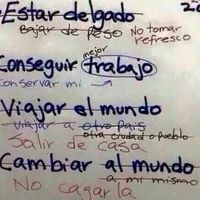 Estar delgado
Bajar de peso No tomar
refresco
mejor
Conseguir trabajo
conservar mi
Viajar el mundo
viajar a otro país
otra ciudad o pueblo
Salir de casa
Cambiar al mundo
a mi mismo
No cagarla